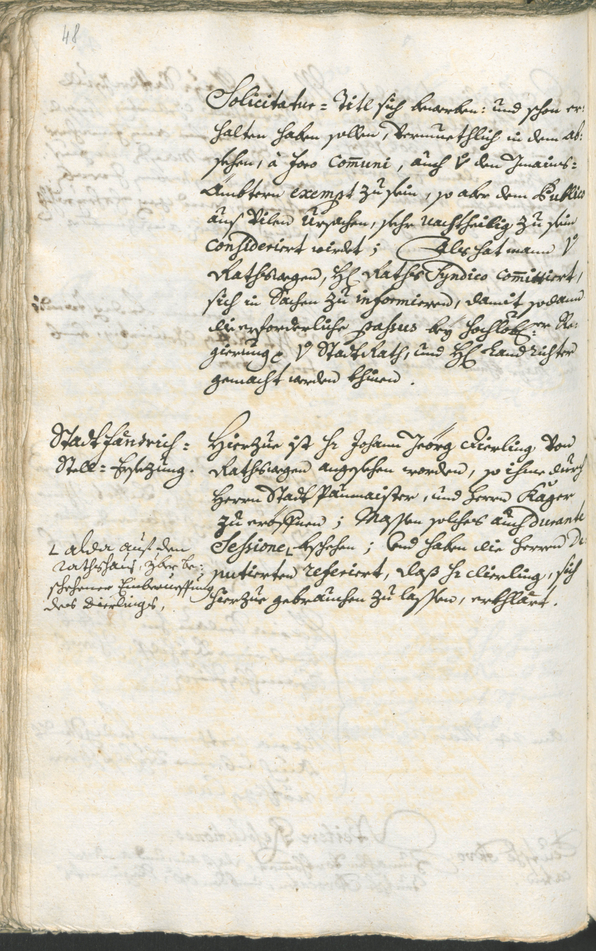 48
Solicitatur= Titl sich bewerben: und schon er=
halten haben sollen, vermuethlich in dem ab=
sehen, à foro com̄uni, auch v den
Ämbtern exempt zu sein, so aber dem Publico
aus vilen Ursachen, sehr nachtheilig zu sein
consideriert wirdt; Also hat mann v
Rathswegen, H: Raths Syndico com̄ittiert,
sich in Sachen zu informieren, damit sodann
die erforderliche passus bey Hochlöb: er Re=
gierung, v Stadt Rath, und H: Landrichter
gemacht werden khönen.
Stadtfändrich=
Stell= Ersezung.
Hierzue ist H: Johann Jeörg Dierling von
Rathswegen angesehen worden, so ihme durch
Herrn Stadt Paumaister, und Herrn Käger
zu eröffnen; Massen solches auch durante
Sessione beschehen; Und haben die Herrn De=
putierten referiert, dass H: Dierling, sich
hierzue gebrauchen zu lassen, erkhlärt.
L alda auf dem
Rathshaus, yber be=
schehener Einberueffung
des Dierlings,